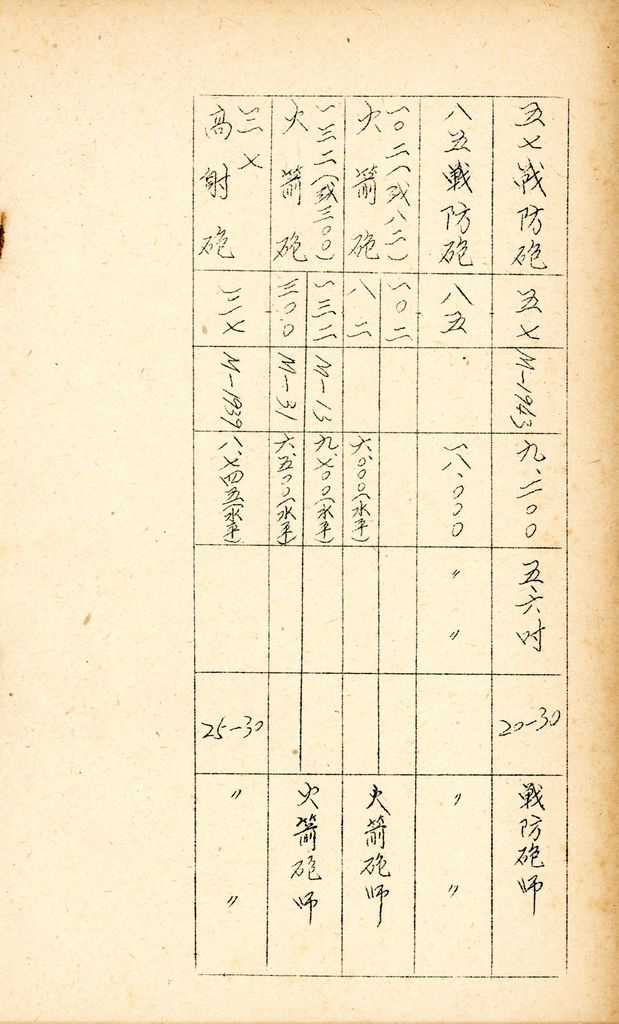 五七戰防砲
五七
M-1943
九.二〇〇
五.六吋
20-30
戰防砲师
八五戰防砲
八五
一八.〇〇〇
〃 〃
〃 〃
一〇二(或八二)
火箭砲
一〇二
八二
六.〇〇〇(水平)
火箭砲师
一三二(或三〇〇)
火箭砲
一三二
三〇〇
M-13
M-31
九.七〇〇(水平)
六.五〇〇(水平)
火箭砲师
三七
高射砲
三七
M-1939
八.七四五(水平)
25-30
〃 〃